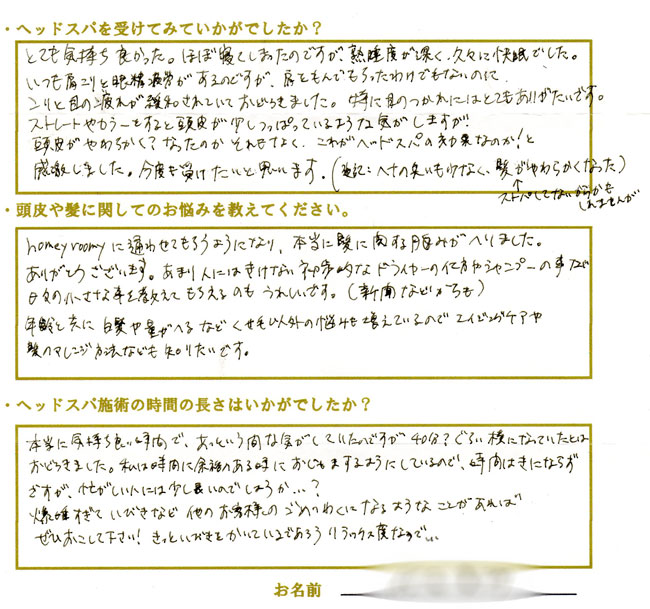 ・ヘッドスパを受けてみていかがでしたか？
とても気持ち良かった。ほぼ寝てしまったのですが、熟睡度が深く、久々に快眠でした。
いつも肩こりと眼精疲労があるのですが、肩ともんでもらったわけでもないのに
コリと目の疲れが緩和されていておどろきました。特に目のつかれにはとてもありがたいです。
ストレートやカラーをすると頭皮が少しつっぱっているような気がしますが
頭皮がやわらかく？なったのか それもなく、これがヘッドスパの効果なのか！と
感激しました。今度も受けたいと思います。（追記：ヘナの臭いも少なく、髪がやわらかくなった）
↑ストパしてないからかも
しれませんが
・頭皮や髪に関してのお悩みを教えてください。
homeyroomyに通わせてもらうようになり、本当に髪に関する悩みがへりました。
ありがとうございます。あまり人にはきけない初歩的なドライヤーの仕方やシャンプーの事など
日々の小さな事を教えてもらえるのもうれしいです。（新聞などからも）
年齢と共に白髪や量がへるなどくせ毛以外の悩みも増えているのでエイジングケアや
髪のアレンジ方法なども知りたいです。
・ヘッドスパ施術の時間の長さはいかがでしたか？
本当に気持ち良い時間で、あっという間な気がしていたのですが40分？ぐらい横になっていたとは
おどろきました。私は時間に余裕のある時におじゃまするようにしているので、時間はきにならず
ですが、忙がしい人には少し長いのでしょうか…？
爆睡すぎていびきなど他のお客様のごめいわくになるようなことがあれば
ぜひおこして下さい！きっといびきをかいているであろうリラックス度なので…
お名前